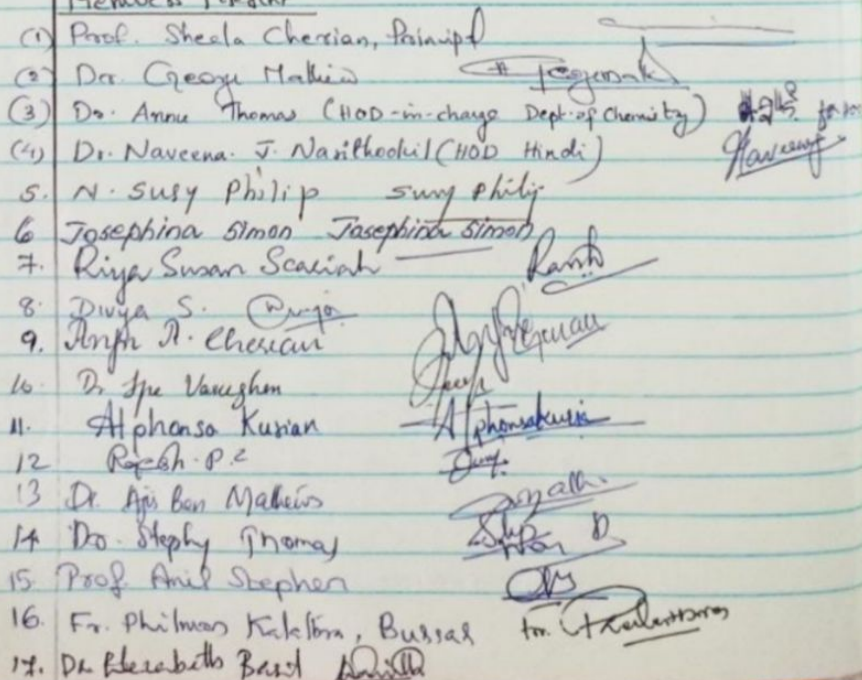 Members Present
(1) Prof. Sheela Cherian, Principal
(2) Dr. George Mathew
(3) Dr. Annu Thomas (HOD-in-charge Dept. of Chemistry)
(4) Dr. Naveena. J. Narithookil (HOD Hindi)
5. N. Susy Philip Susy Philip
6 Josephina Simon Josephina Simon
7. Riya Susan Scariah
8. Divya S. Divya
9. A. Cherian
10. Dr Varughese
11. Alphonsa Kurian Alphonsakurian
12 Rajesh. P. C
13 Dr. Ajis Ben Mathews
14 Dr. Stephy Thomas
15. Prof. Anil Stephen
16. Fr. Philmon, Bursar
17. Dr. Elizabeth